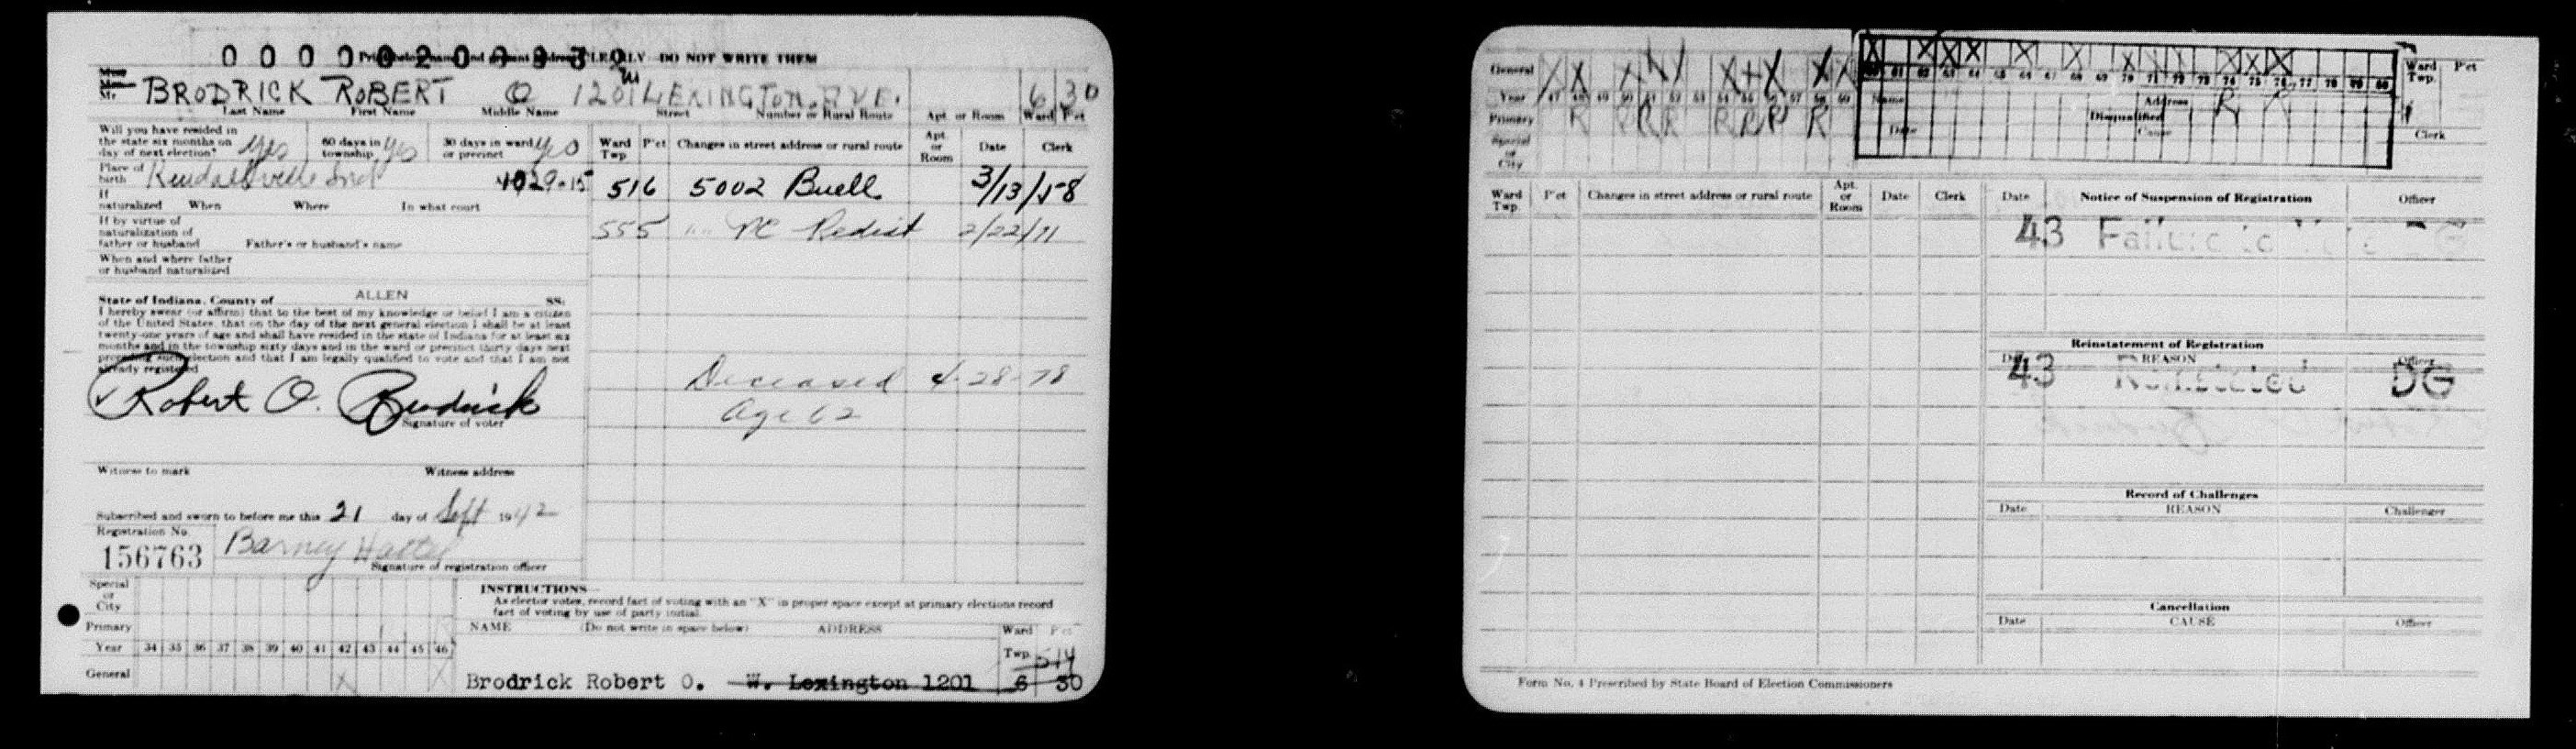 CLEARLY DO NOT WRITE THEM
Mr BRODRICK ROBERT O 1201 W LEXINGTON AVE. 6 30
Last Name First Name Middle Name Street Number or Rural Route Apt. or Room Ward P'ct
Will you have resided in the state six months on day of next election? Yes 60 days in township Yes 30 days in ward or precinct yes
Ward Twp P'ct Changes in street address or rural route Apt. or Room Date Clerk
Place of birth Kendallville Ind 1029-15
516 5002 Buell 3/13/58
If naturalized When Where In what court
555 " " PC Redist 2/22/71
If by virtue of naturalization of father or husband Father's or husband's name
When and where father or husband naturalized
State of Indiana, County of ALLEN SS:
I hereby swear (or affirm) that to the best of my knowledge or belief I am a citizen
of the United States, that on the day of the next general election I shall be at least
twenty-one years of age and shall have resided in the state of Indiana for at least six
months and in the township sixty days and in the ward or precinct thirty days next
preceding such election and that I am legally qualified to vote and that I am not
already registered
Deceased 4-28-78
Age 62
Robert O. Brodrick
Signature of voter
Witness to mark Witness address
Subscribed and sworn to before me this 21 day of Sept 1942
Registration No.
156763 Barney
Signature of registration officer
Special or City
Primary
Year 34 35 36 37 38 39 40 41 42 43 44 45 46
General X
INSTRUCTIONS
As elector votes, record fact of voting with an "X" in proper space except at primary elections record
fact of voting by use of party initial.
NAME (Do not write in space below) ADDRESS Ward P'ct
Twp. 514
Brodrick Robert O. W. Lexington 1201 6 30
General X X X X X X X X X
Year 47 48 49 50 51 52 53 54 55 56 57 58 59
Primary R R R R R R R R
Special or City
61 62 63 64 65 66 67 68 69 70 71 72 73 74 75 76 77 78 79 80
Name Address R R
Disqualified
Date Cause
Ward Twp. P'ct
Clerk
Ward Twp. P'ct Changes in street address or rural route Apt. or Room Date Clerk
Date Notice of Suspension of Registration Officer
43 Failure to Vote
Reinstatement of Registration
Date REASON Officer
43 Reinstated DG
Record of Challenges
Date REASON Challenger
Cancellation
Date CAUSE Officer
Form No. 4 Prescribed by State Board of Election Commissioners